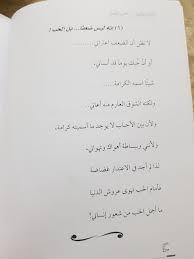 (١) إنه ليس ضعفًا... بل الحب!
لا تظن أن الضعف اعتراني
أو أن حبك يوما قد أنساني
شيئًا اسمه الكرامة..
ولكنه الشوق العارم منه أعاني
ولأن بين الأحباب لا يوجد ما أسميته كرامة،
ولأنني وببساطة أهواك وتهواني،
لذا لم أجد في الاعتذار غضاضة
فأمام الحب تهوى عروش الدنيا
ما أجمل الحب من شعور إنساني!